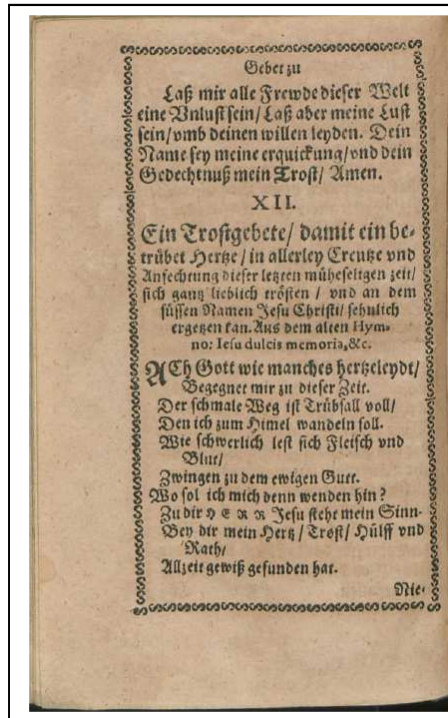 Gebet zu
Laß mir alle Frewde dieser Welt
eine Vnlust sein/ Laß aber meine Lust
sein/ vmb deinen willen leyden. Dein
Name sey meine erquickung/ vnd dein
Gedechtnuß mein Trost/ Amen.
XII.
Ein Trostgebete/ damit ein be-
trübet Hertze/ in allerley Creutze vnd
Anfechtung dieser letzten müheseligen zeit/
sich gantz lieblich trösten / vnd an dem
süssen Namen Jesu Christi/ sehnlich
ergetzen kan. Aus dem alten Hym-
no: Iesu dulcis memoria, &c.
ACh Gott wie manches hertzeleydt/
Begegnet mir zu dieser Zeit.
Der schmale Weg ist Trübsall voll/
Den ich zum Himel wandeln soll.
Wie schwerlich lest sich Fleisch vnd
Blut/
Zwingen zu dem ewigen Gutt.
Wo sol ich mich denn wenden hin?
Zu dir HERR Jesu steht mein Sinn.
Bey dir mein Hertz/ Trost/ Hülff vnd
Rath/
Allzeit gewiß gefunden hat.
Nie-